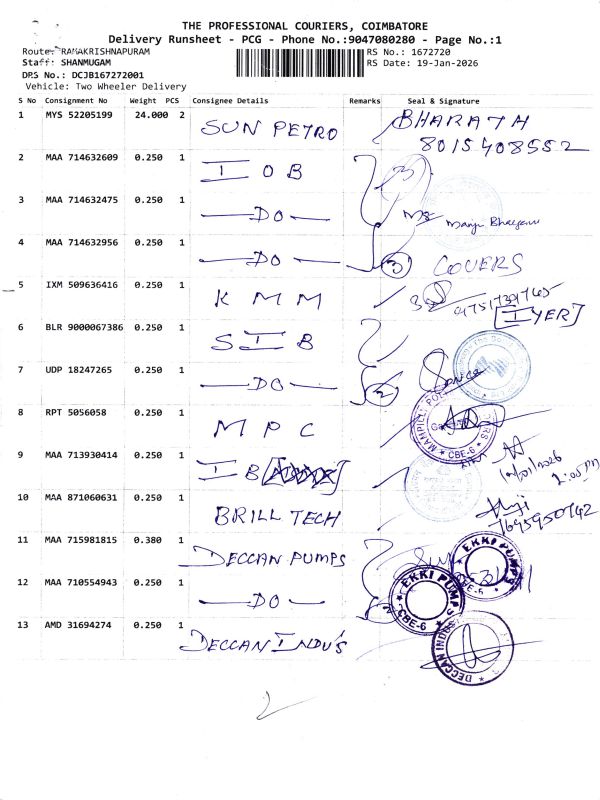 THE PROFESSIONAL COURIERS, COIMBATORE
Delivery Runsheet - PCG - Phone No.:9047080280 - Page No.:1
Route: RAMAKRISHNAPURAM
RS No.: 1672720
Staff: SHANMUGAM
RS Date: 19-Jan-2026
DRS No.: DCJB167272001
Vehicle: Two Wheeler Delivery
S No Consignment No Weight PCS Consignee Details Remarks Seal & Signature
1 MYS 52205199 24.000 2 SUN PETRO BHARATH
8015408552
2 MAA 714632609 0.250 1 IOB
3 MAA 714632475 0.250 1 —DO—
4 MAA 714632956 0.250 1 —DO— 3 COVERS
5 IXM 509636416 0.250 1 KMM
[IYER]
6 BLR 9000067386 0.250 1 SIB
7 UDP 18247265 0.250 1 —DO— 2
8 RPT 5056058 0.250 1 MPC
CBE-6
9 MAA 713930414 0.250 1 IB
2:05 PM
10 MAA 871060631 0.250 1 BRILL TECH
7695950742
11 MAA 715981815 0.380 1 DECCAN PUMPS
EKKI PUMPS
CBE-6
12 MAA 710554943 0.250 1 —DO— 2
EKKI PUMPS
CBE-6
13 AMD 31694274 0.250 1 DECCAN INDU'S
DECCAN INDUS